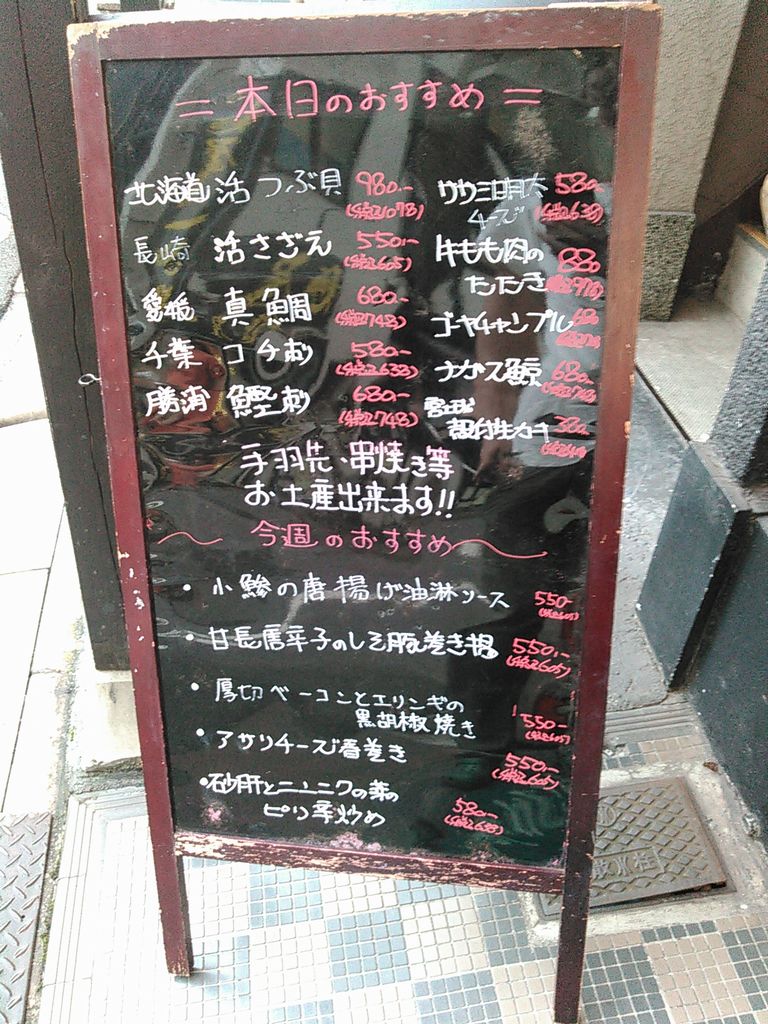 = 本日のおすすめ =
北海道 活つぶ貝 980.-
(税込1078)
長崎 活さざえ 550.-
(税込605)
愛媛 真鯛 680.-
(税込748)
千葉 コチ刺 580.-
(税込638)
勝浦 鰹刺 680.-
(税込748)
クリーム明太 580.-
チーズ (税込638)
牛もも肉の 880
たたき
ゴーヤチャンプル 680
ナガス鯨 680.-
殻付生カキ 380.-
手羽先、串焼き等
お土産出来ます!!
今週のおすすめ
・小鰺の唐揚げ油淋ソース 550-
(税込605)
・甘長唐辛子のしそ豚巻き揚 550.-
(税込605)
・厚切ベーコンとエリンギの
黒胡椒焼き 550-
(税込605)
・アサリチーズ春巻き 550.-
(税込605)
・砂肝とニンニクの芽の
ピリ辛炒め 580.-
(税込638)
散水栓